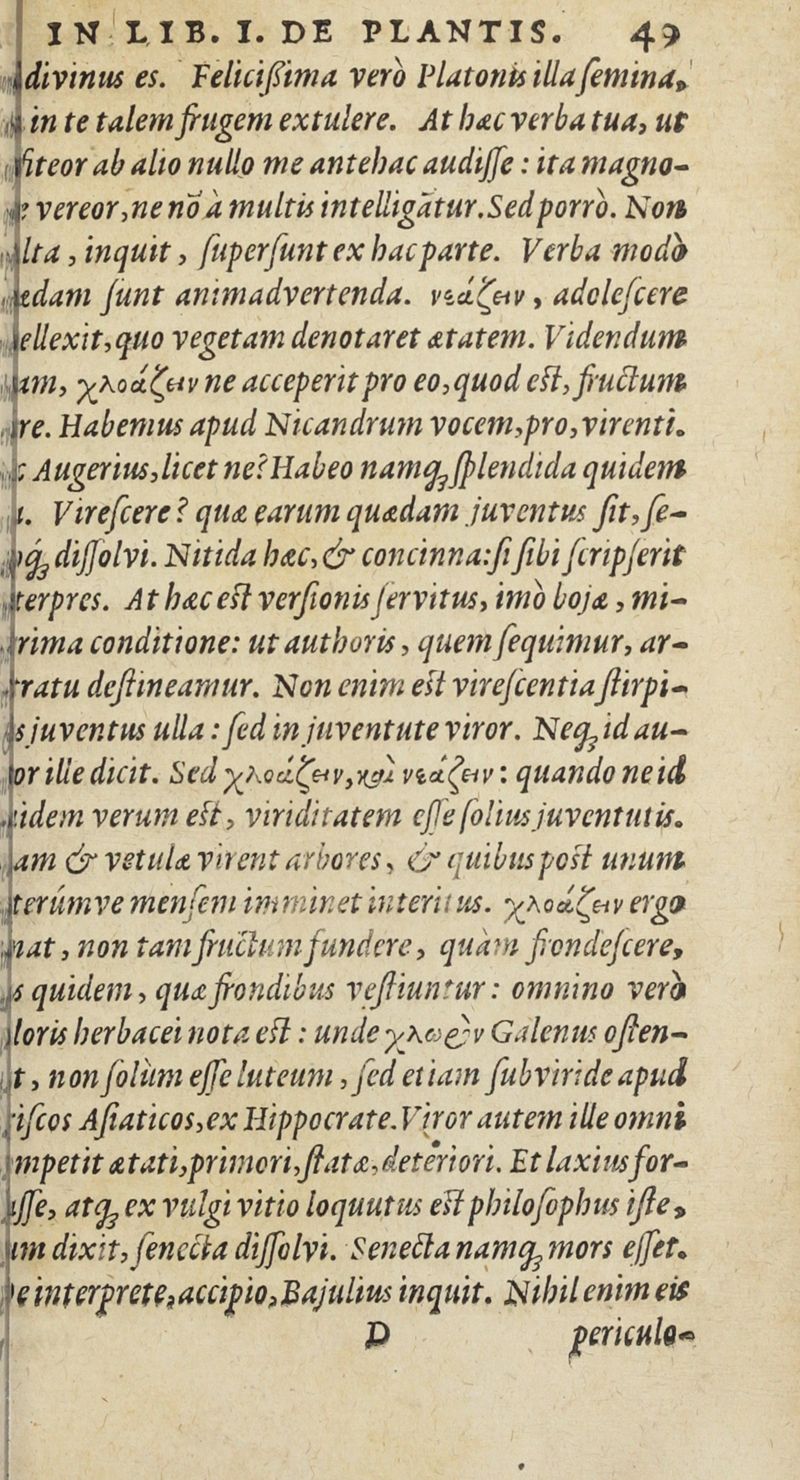 IN LIB. I. DE PLANTIS. 49
divinus es. Felicißima verò Platonis illa ſemina,
in te talem frugem extulere. At hæc verba tua, ut
fiteor ab alio nullo me antehac audiſſe : ita magno-
vereor, ne nō à multis intelligātur. Sed porrò. Non
lta, inquit, ſuperſunt ex hac parte. Verba modò
ædam ſunt animadvertenda. νεάζειν, adoleſcere
ellexit, quo vegetam denotaret ætatem. Videndum
am, χλοάζειν ne acceperit pro eo, quod eſt, fructum
re. Habemus apud Nicandrum vocem, pro, virenti.
Augerius, licet ne? Habeo namq; ſplendida quidem
Vireſcere? quæ earum quædam juventus fit, ſe-
q; diſſolvi. Nitida hæc, & concinna: ſi ſibi ſcripſerit
terpres. At hæc eſt verſionis ſervitus, imò bojæ, mi-
rima conditione: ut authoris, quem ſequimur, ar-
ratu deſtineamur. Non enim eſt vireſcentia ſtirpi-
s juventus ulla : ſed in juventute viror. Neq; id au-
or ille dicit. Sed χλοάζειν, καὶ νεάζειν : quando ne id
idem verum eſt, viriditatem eſſe ſolius juventutis.
am & vetulæ virent arbores, & quibus poſt unum
terúmve menſem imminet interitus. χλοάζειν ergo
nat, non tam fructum fundere, quàm frondeſcere,
s quidem, quæ frondibus veſtiuntur : omnino verò
loris herbacei nota eſt : unde χλωρὸν Galenus oſten-
t, non ſolùm eſſe luteum, ſed etiam ſubviride apud
iſcos Aſiaticos, ex Hippocrate. Viror autem ille omni
mpetit ætati, primori, ſtatæ, deteriori. Et laxius for-
iſſe, atq; ex vulgi vitio loquutus eſt philoſophus iſte,
um dixit, ſenecta diſſolvi. Senecta namq; mors eſſet.
e interprete, accipio, Bajulius inquit. Nihil enim eis
D periculo-